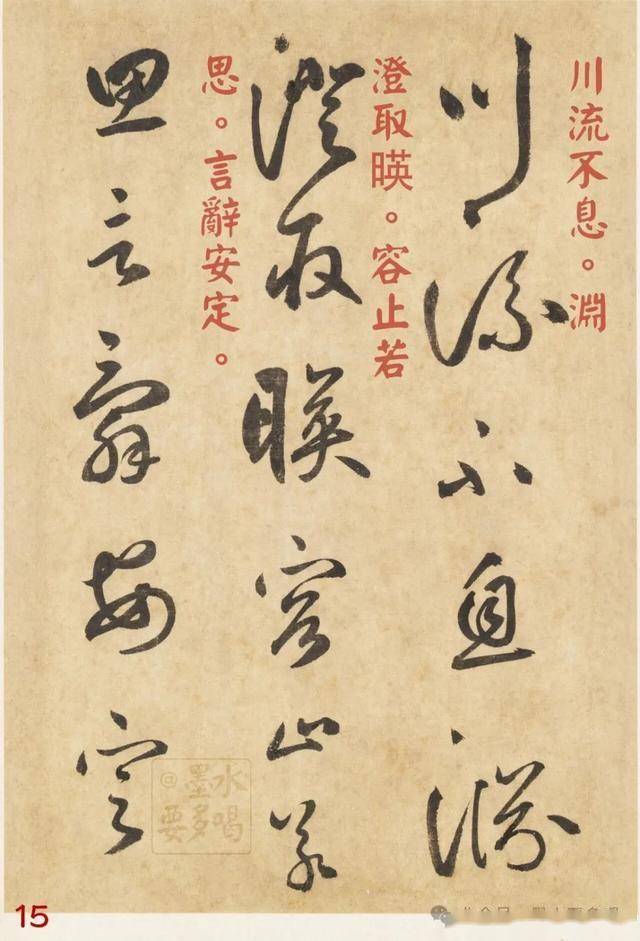 川流不息。淵
川流不息淵
澄取暎。容止若
澄取暎容止若
思。言辭安定。
思言辭安定
@墨水
要多喝
15